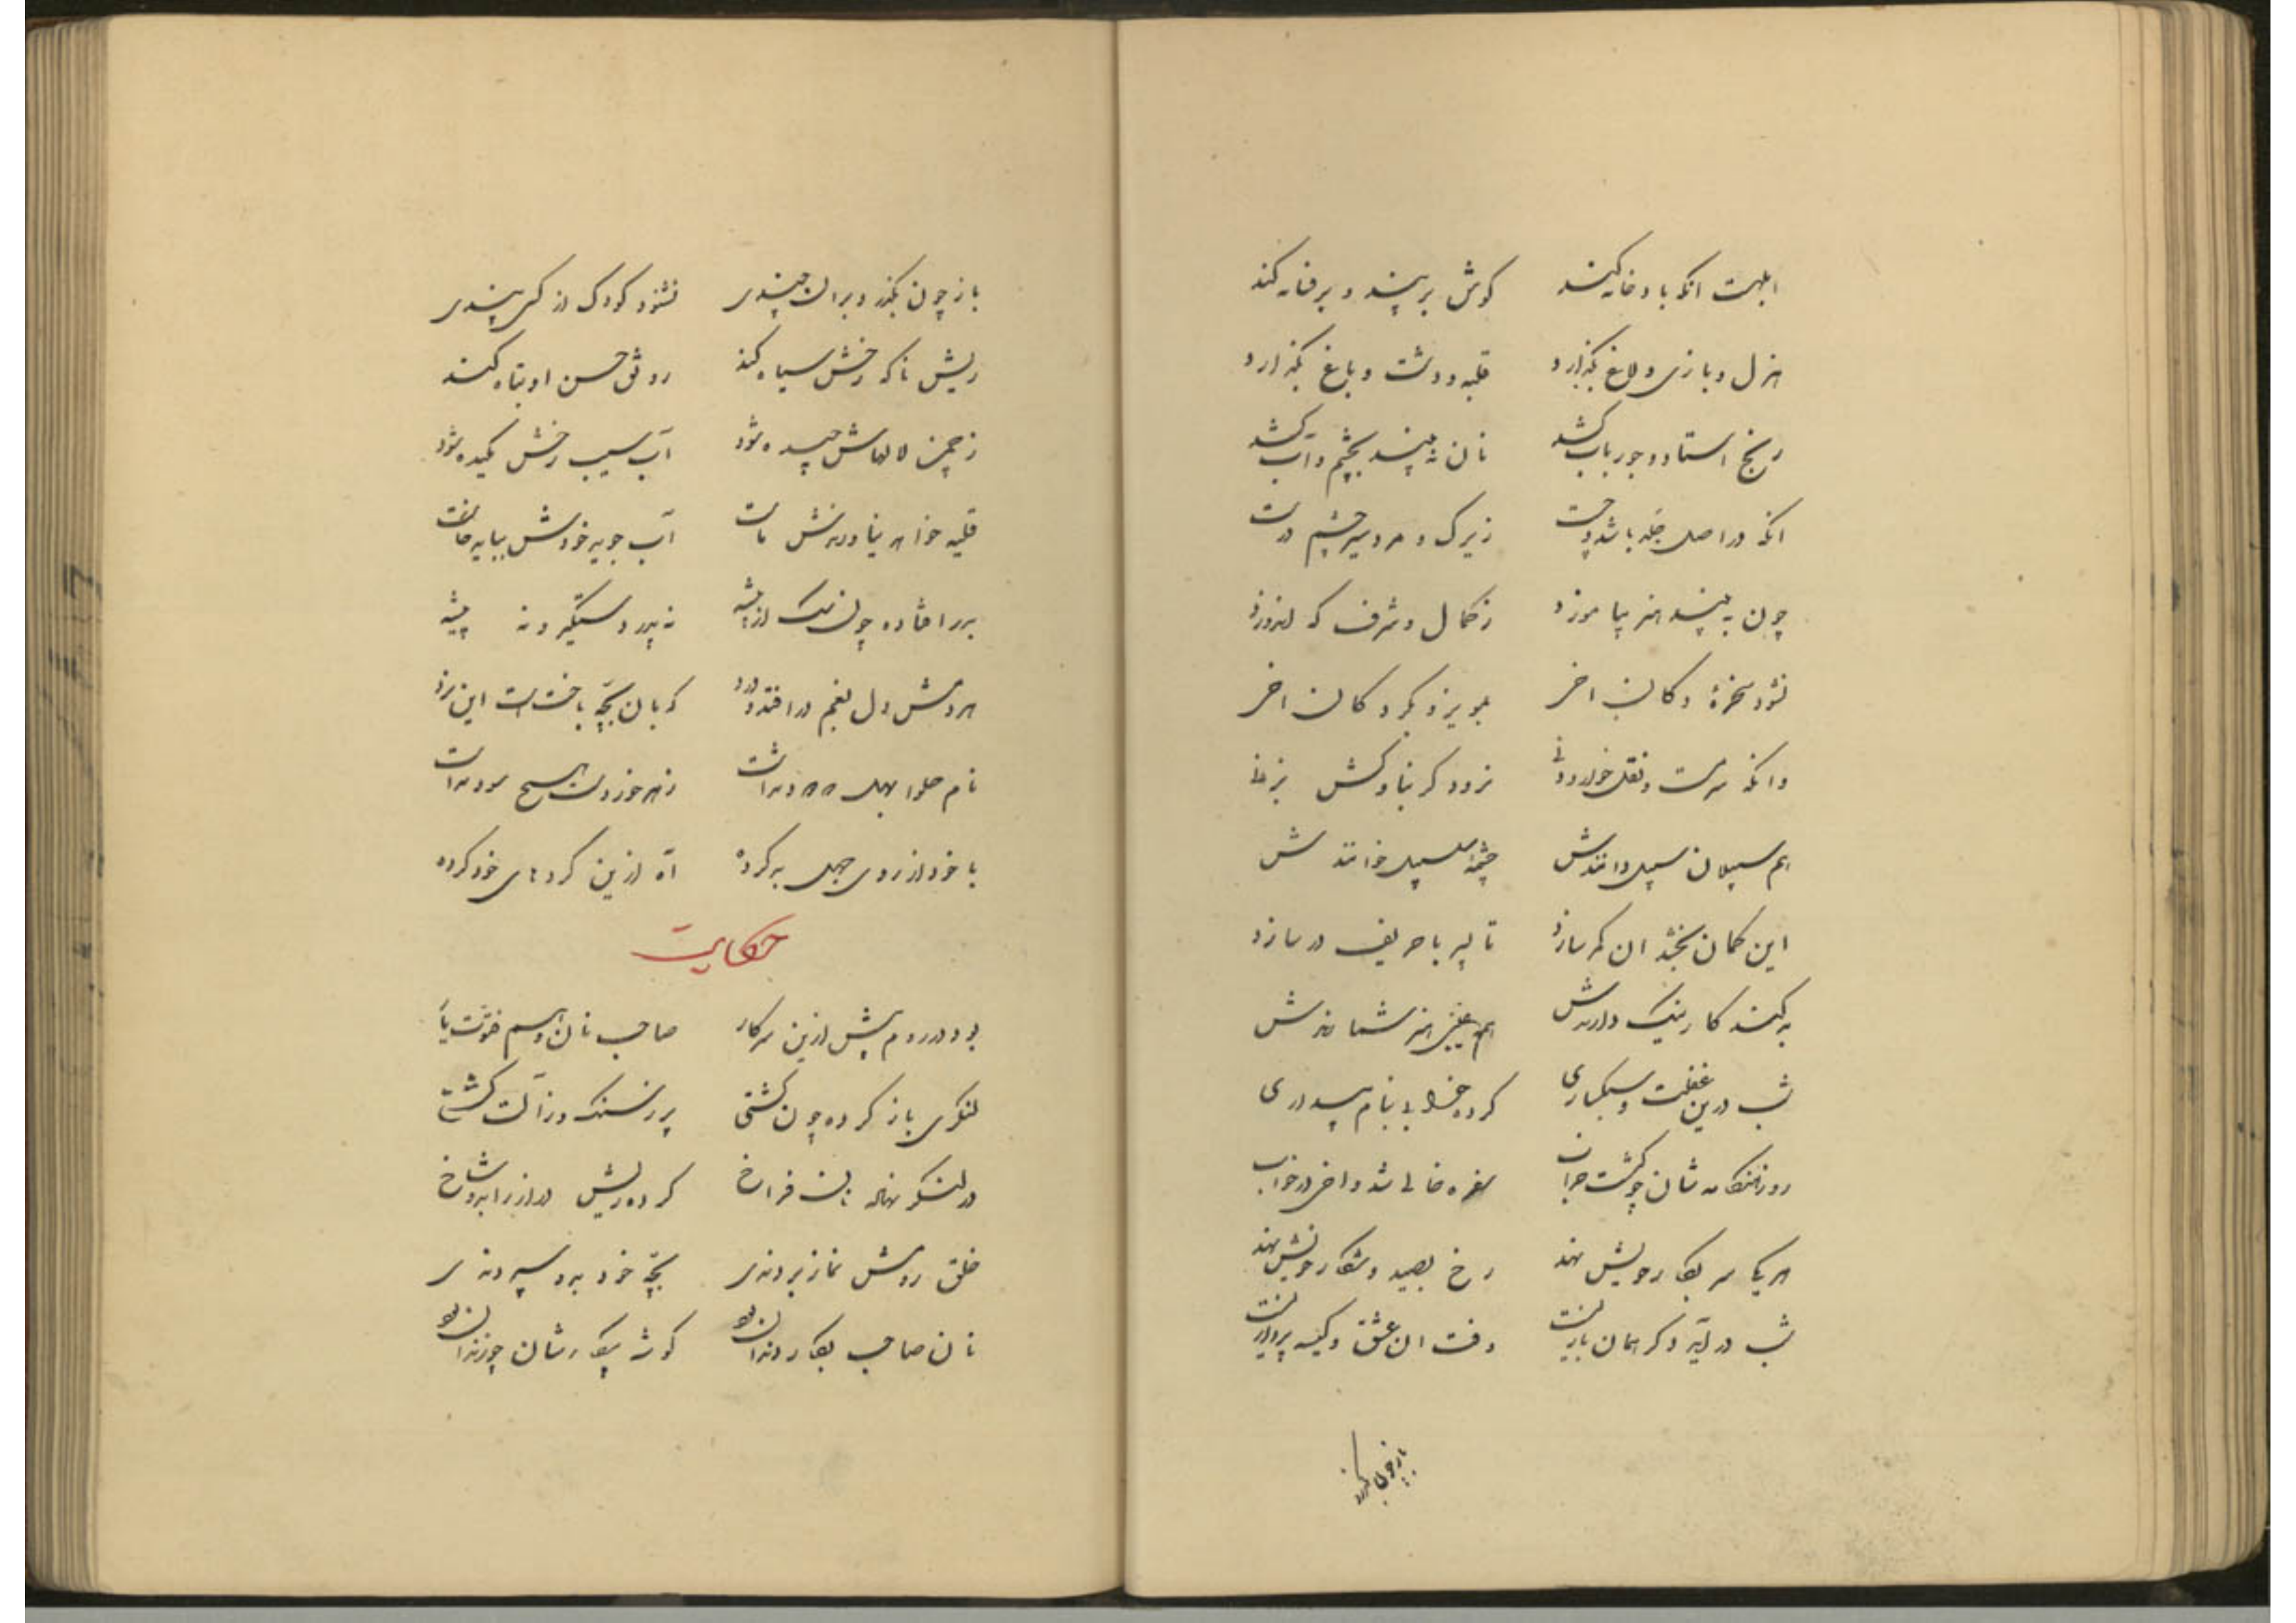 ابلهست انکه با و خانه کند کوش بر پند و بر فسانه کند
هزل و بازی و لاغ بگذارد قلیه و دشت و باغ بگذارد
رنج استاد و جور باب کشد نان نه بیند بچشم و آب کشد
انکه در اصل جلد باشد و چست زیرک و مرد و سیر چشم درست
چون به بیند هنر بیاموزد ز کمال و شرف که اندوزد
نشود سخرهٔ دکان اخر بگریزد دکان اخر
وانکه سرمست و نقل خوار نرود کر بناوکش بزنی
هم سبیلان سبیل دانندش چشمهٔ سلسبیل خوانندش
این کمان بخشد ان کمر سازد تا پسر با حریف در سازد
به کند کار نیک دارندش هم هنر شمارندش
شب درین غفلت و سبکباری کرده بنام پسدری
روز هنگامه شان چو کشت خراب سفره خالی شد و اخی در خواب
هر یک سر بکار خویش نهد رخ بصید و شکار خویش نهد
شب در آید دکر همان بازیست وقت ان عشق و کیسه پردازیست
باز چون بگذرد
باز چون بگذرد بران چندی نشنود کودک از کسی پندی
ریش ناکه رخش سیاه کند رونق حسن او تباه کند
ز چمن لالهاش چیده شود آب سیب رخش مکیده شود
قلیه خواهد نیاورندش ماست آب جوید خودش بباید خاست
بدر افتاده چون سک از بیشه نه پدر دستگیر و نه پیشه
هر دمش دل بغم در افتد و درد که بان بچه باخت است این نرد
نام حلوا بهل که دود نداشت زهر خوردن هیچ سود نداشت
با خود از روی جهل بد کرده آه ازین کردهای خود کرده
حکایت
بود در روم پیش ازین سر کار صاحب نان و اسم فتوت یار
لنگری باز کرده چون کشتی پر ز سنک و ز آلت کشتی
در لنکر نهاده باز فراخ کرده ریش دراز را بدو شاخ
خلق رویش نماز بردندی بچه خود بدو سپردندی
نان صاحب بکار دندان بود کوشه پیکارشان چو زندان بود